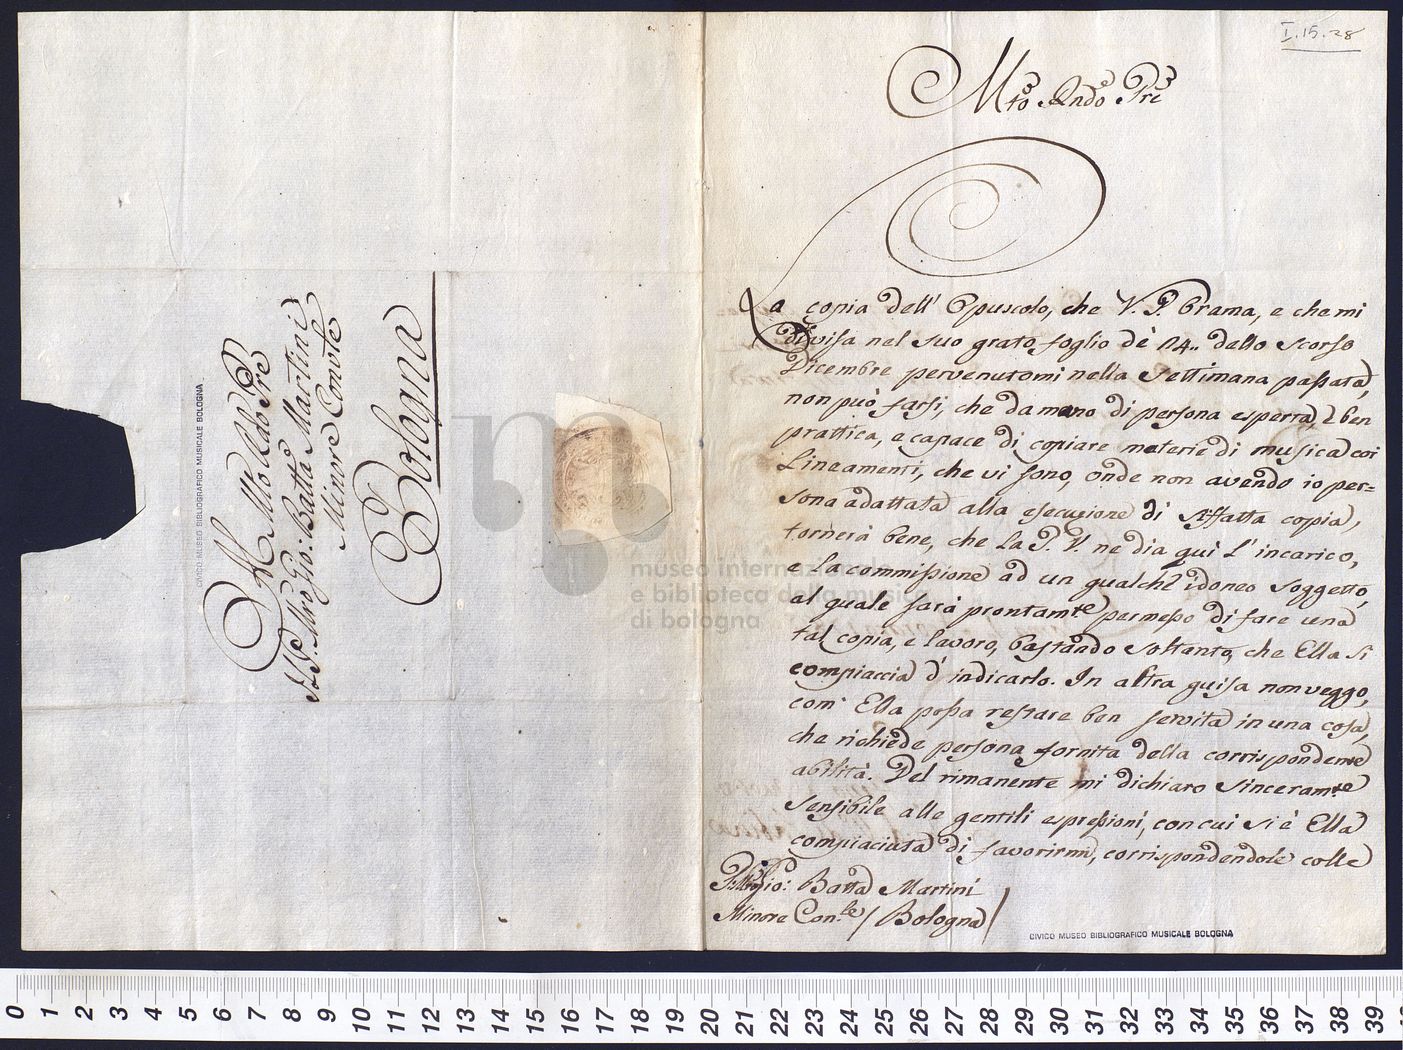 I.15.28
Mto Rndo Pre
La copia dell' Opuscolo, che V. P. brama, e che mi
divisa nel suo grato foglio dè 14.. dello scorso
Dicembre pervenutomi nella Settimana passata,
non può farsi, che da mano di persona esperta, e ben
prattica, e capace di copiare materie di musica coi
Lineamenti, che vi sono, onde non avendo io per=
sona adattata alla esecuzione di siffatta copia,
tornerà bene, che la P. V. ne dia quì l'incarico,
e la commissione ad un qualche idoneo soggetto,
al quale sarà prontamte permesso di fare una
tal copia, e lavoro, bastando soltanto, che Ella si
compiaccia d'indicarlo. In altra guisa non veggo,
com' Ella possa restare ben servita in una cosa,
che richiede persona fornita della corrispondente
abilità. Del rimanente mi dichiaro sinceramte
sensibile alle gentili espressioni, con cui si è Ella
compiaciuta di favorirmi, corrispondendole colle
P. Mro Gio: Batta Martini
Minore Conle / Bologna /
CIVICO MUSEO BIBLIOGRAFICO MUSICALE BOLOGNA
Al Mto Rdo Pre
Il P. Mro Gio: Batta Martini
Minore Convle
Bologna
CIVICO MUSEO BIBLIOGRAFICO MUSICALE BOLOGNA
museo internazionale
e biblioteca della musica
di bologna
0 1 2 3 4 5 6 7 8 9 10 11 12 13 14 15 16 17 18 19 20 21 22 23 24 25 26 27 28 29 30 31 32 33 34 35 36 37 38 39